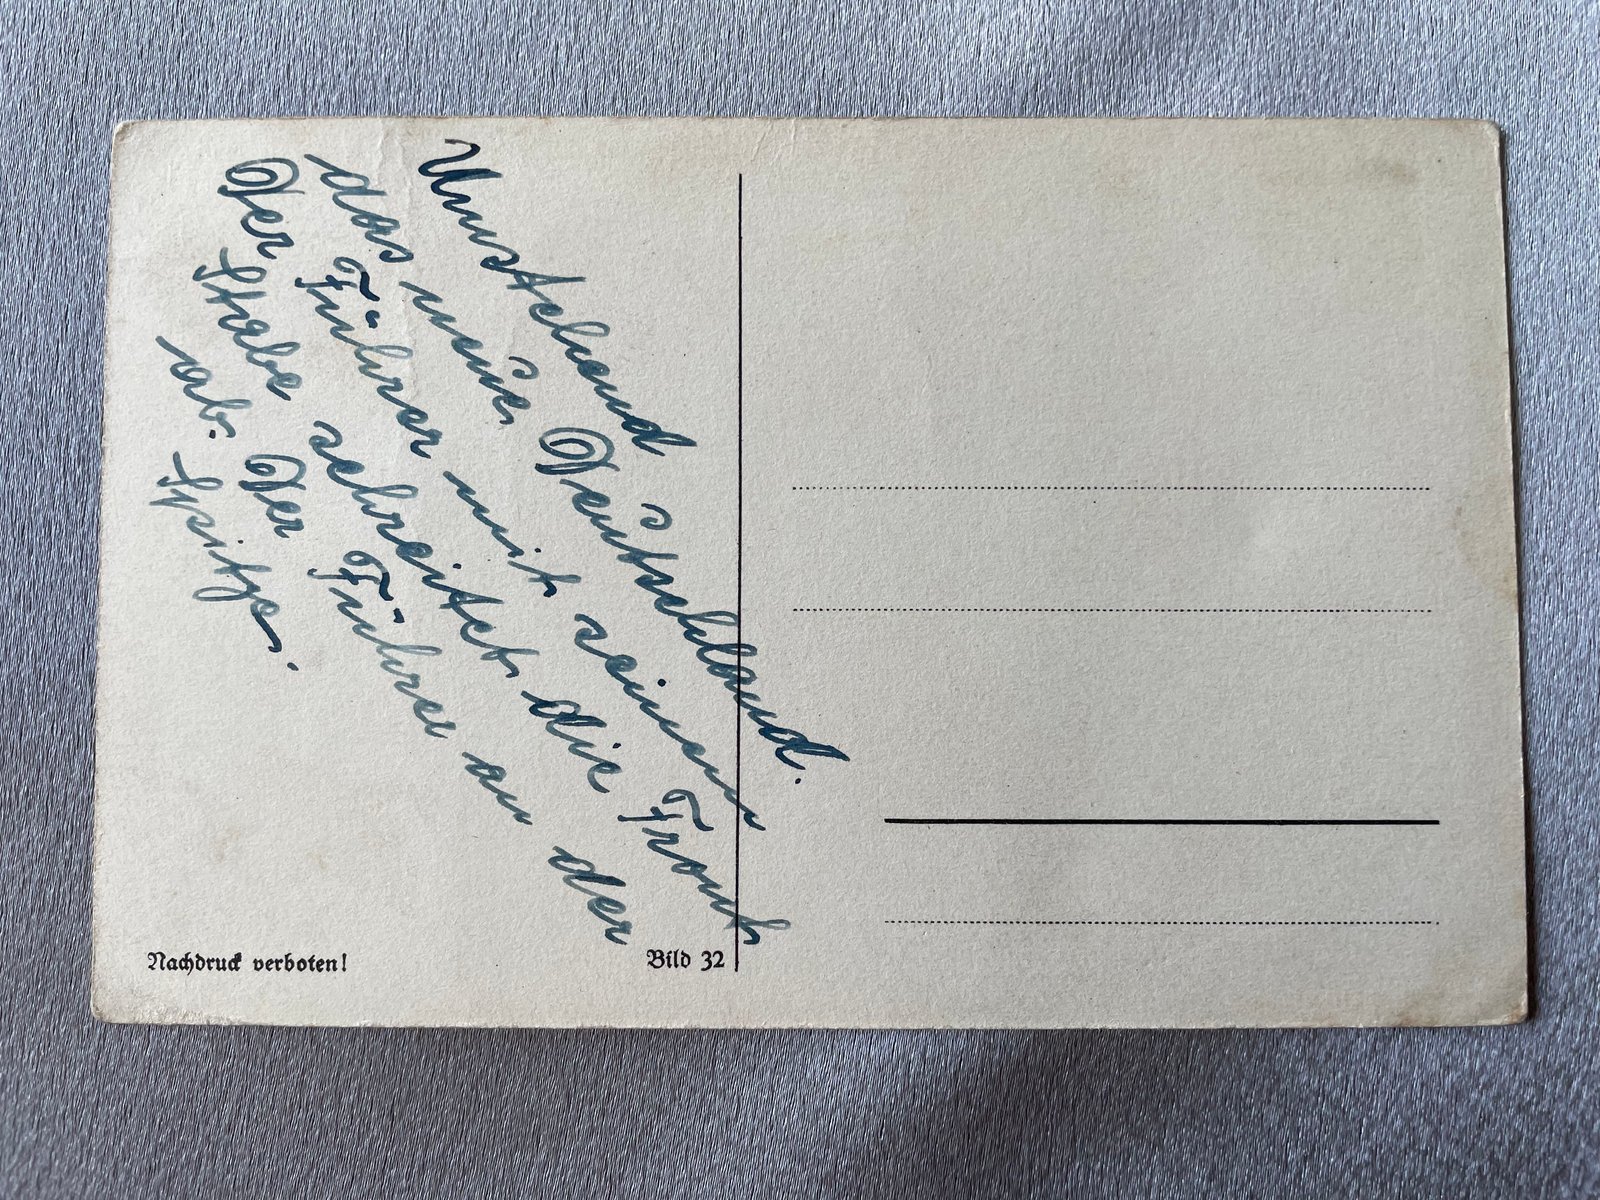 Umstehend
das neue Deutschland.
Der Führer mit seinem
Stabe schreitet die Front
ab. Der Führer an der
Spitze.
Nachdruck verboten!
Bild 32